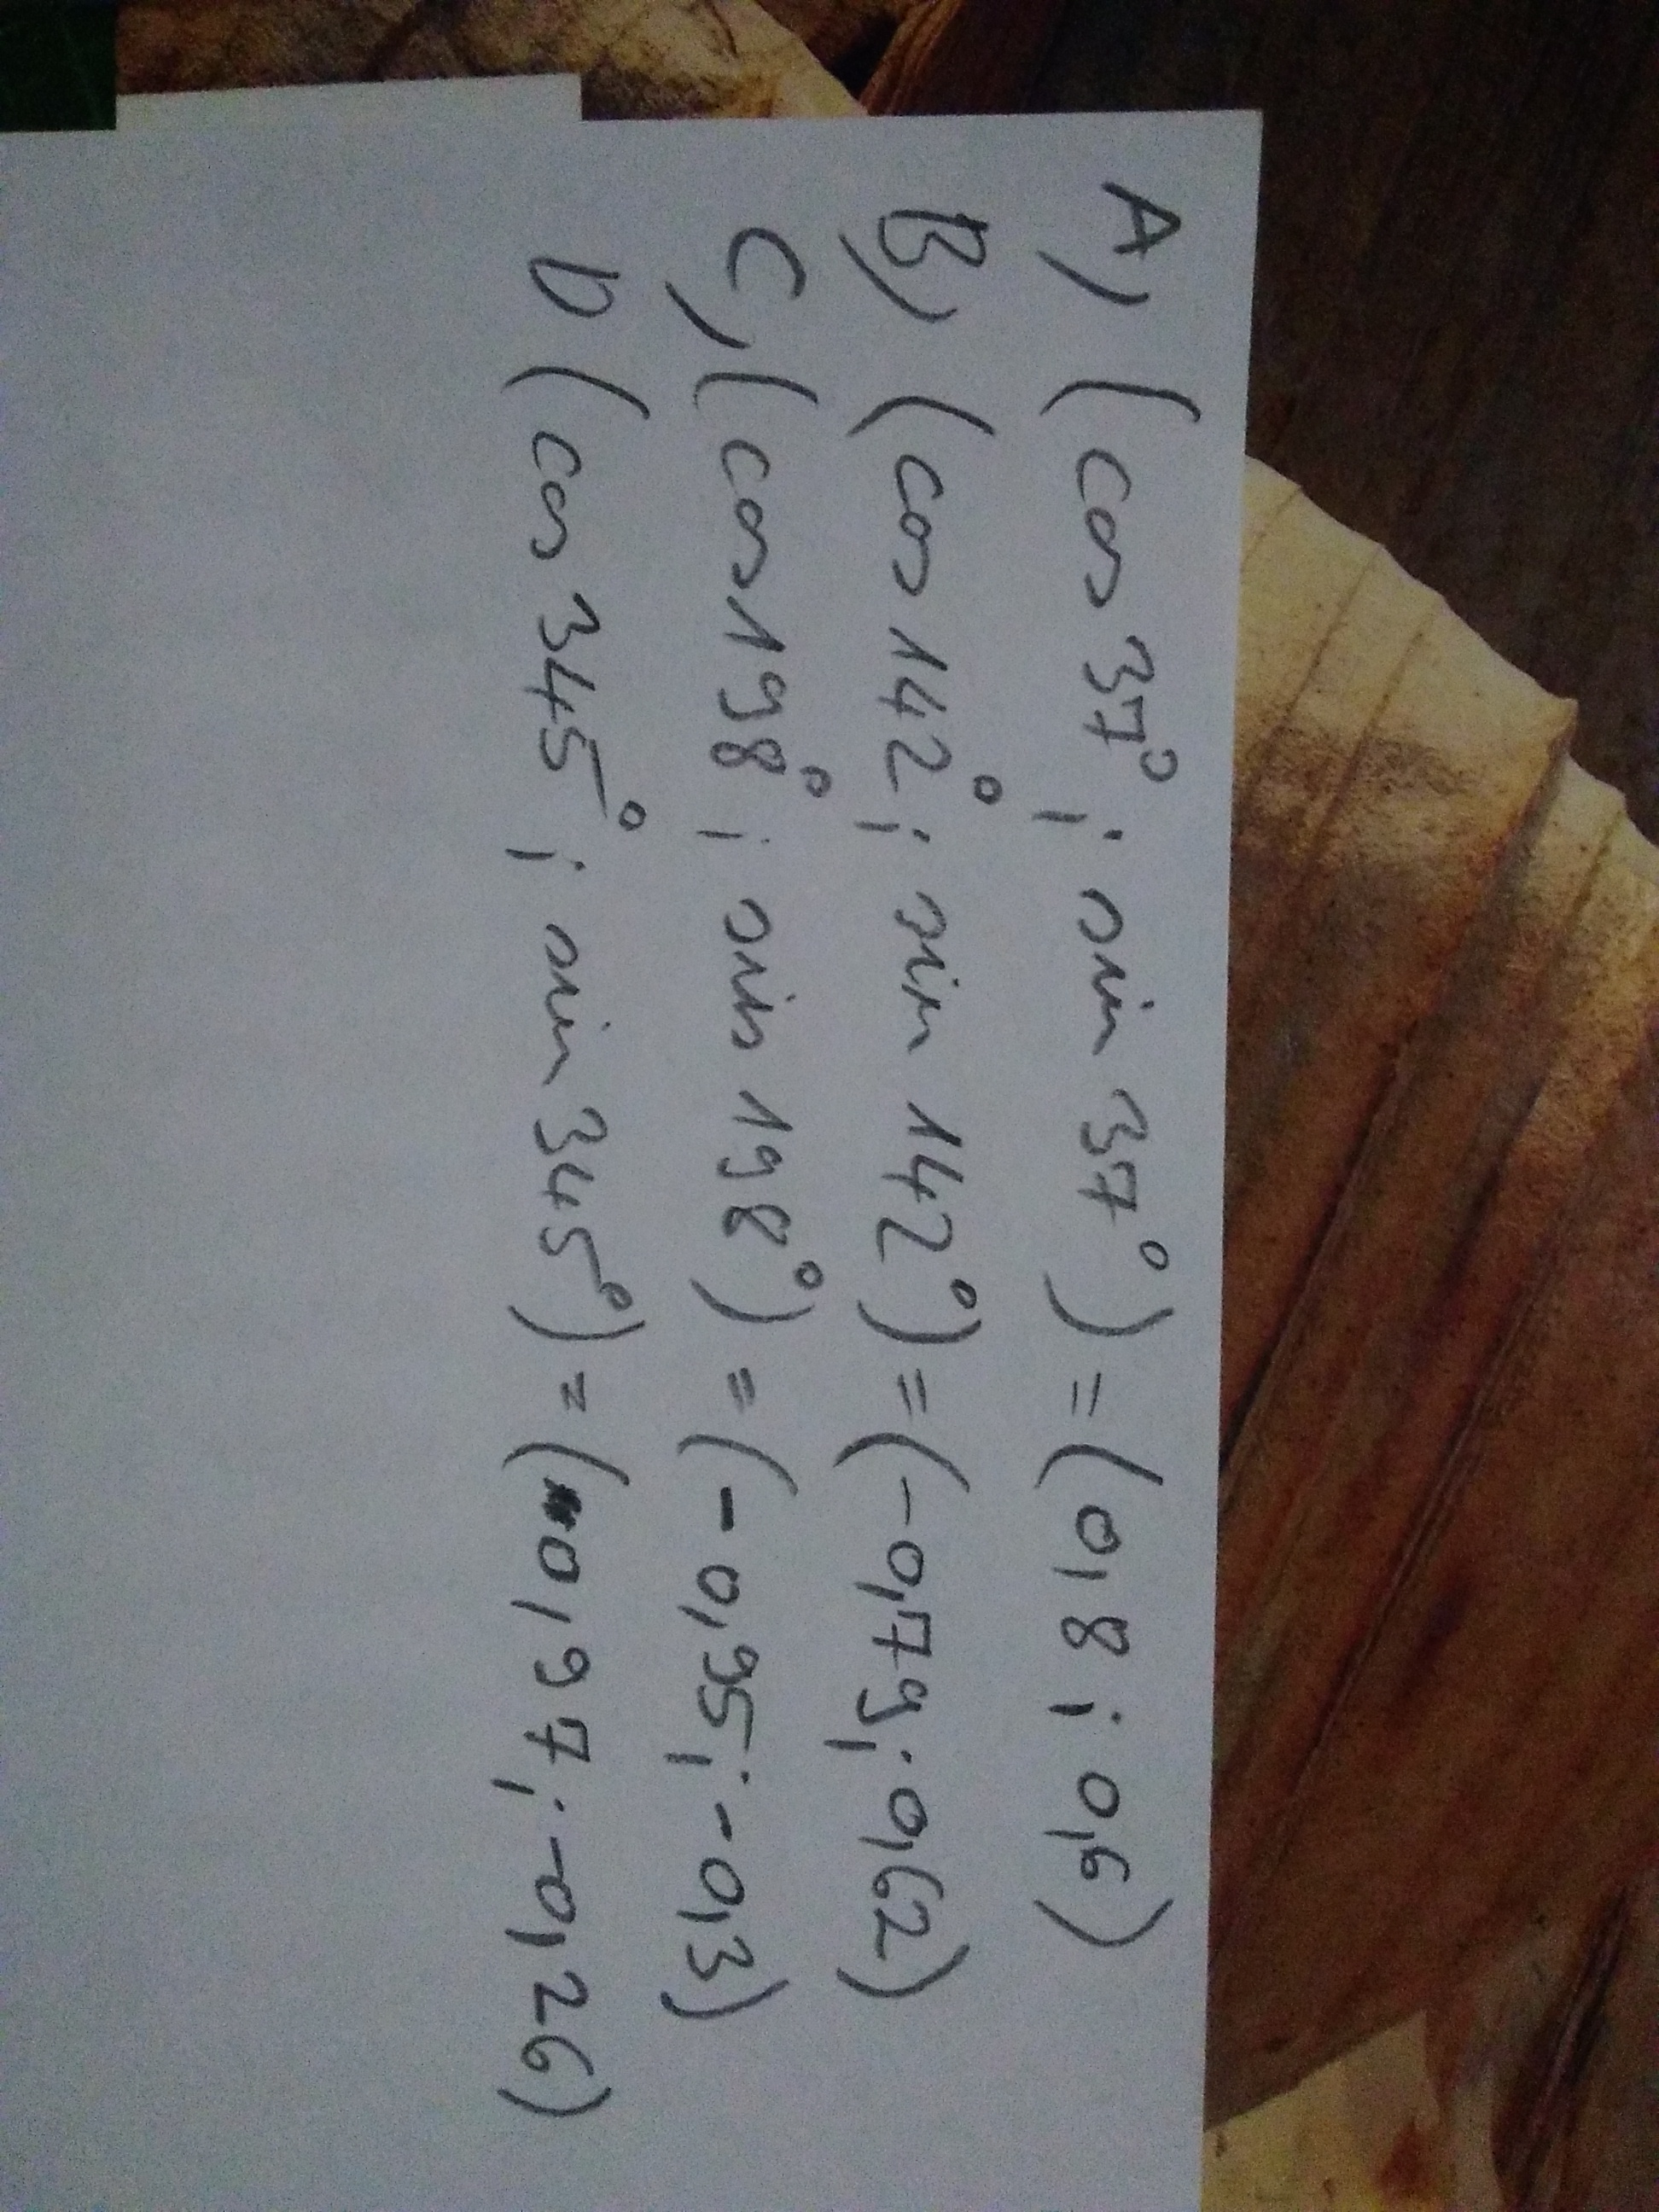 A) (cos 37° ; sin 37°) = (0,8 ; 0,6)
B) (cos 142° ; sin 142°) = (-0,79 ; 0,62)
C) (cos 198° ; sin 198°) = (-0,95 ; -0,3)
D (cos 345° ; sin 345°) = (0,97 ; -0,26)